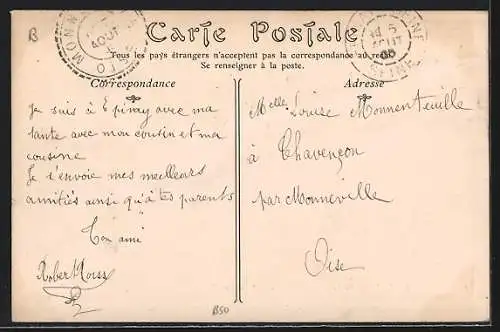 B
Carte Postale
Tous les pays étrangers n'acceptent pas la correspondance au recto
Se renseigner à la poste.
Correspondance
Adresse
Je suis à Epinay avec ma
tante avec mon cousin et ma
cousine
Je t'envoie mes meilleurs
amitiés ainsi qu'à tes parents
Ton ami
Robert
Melle Louise Monnenteuille
à Chavençon
par Monneville
Oise
B50
MONN
AOUT
OI
SEINE
AOUT